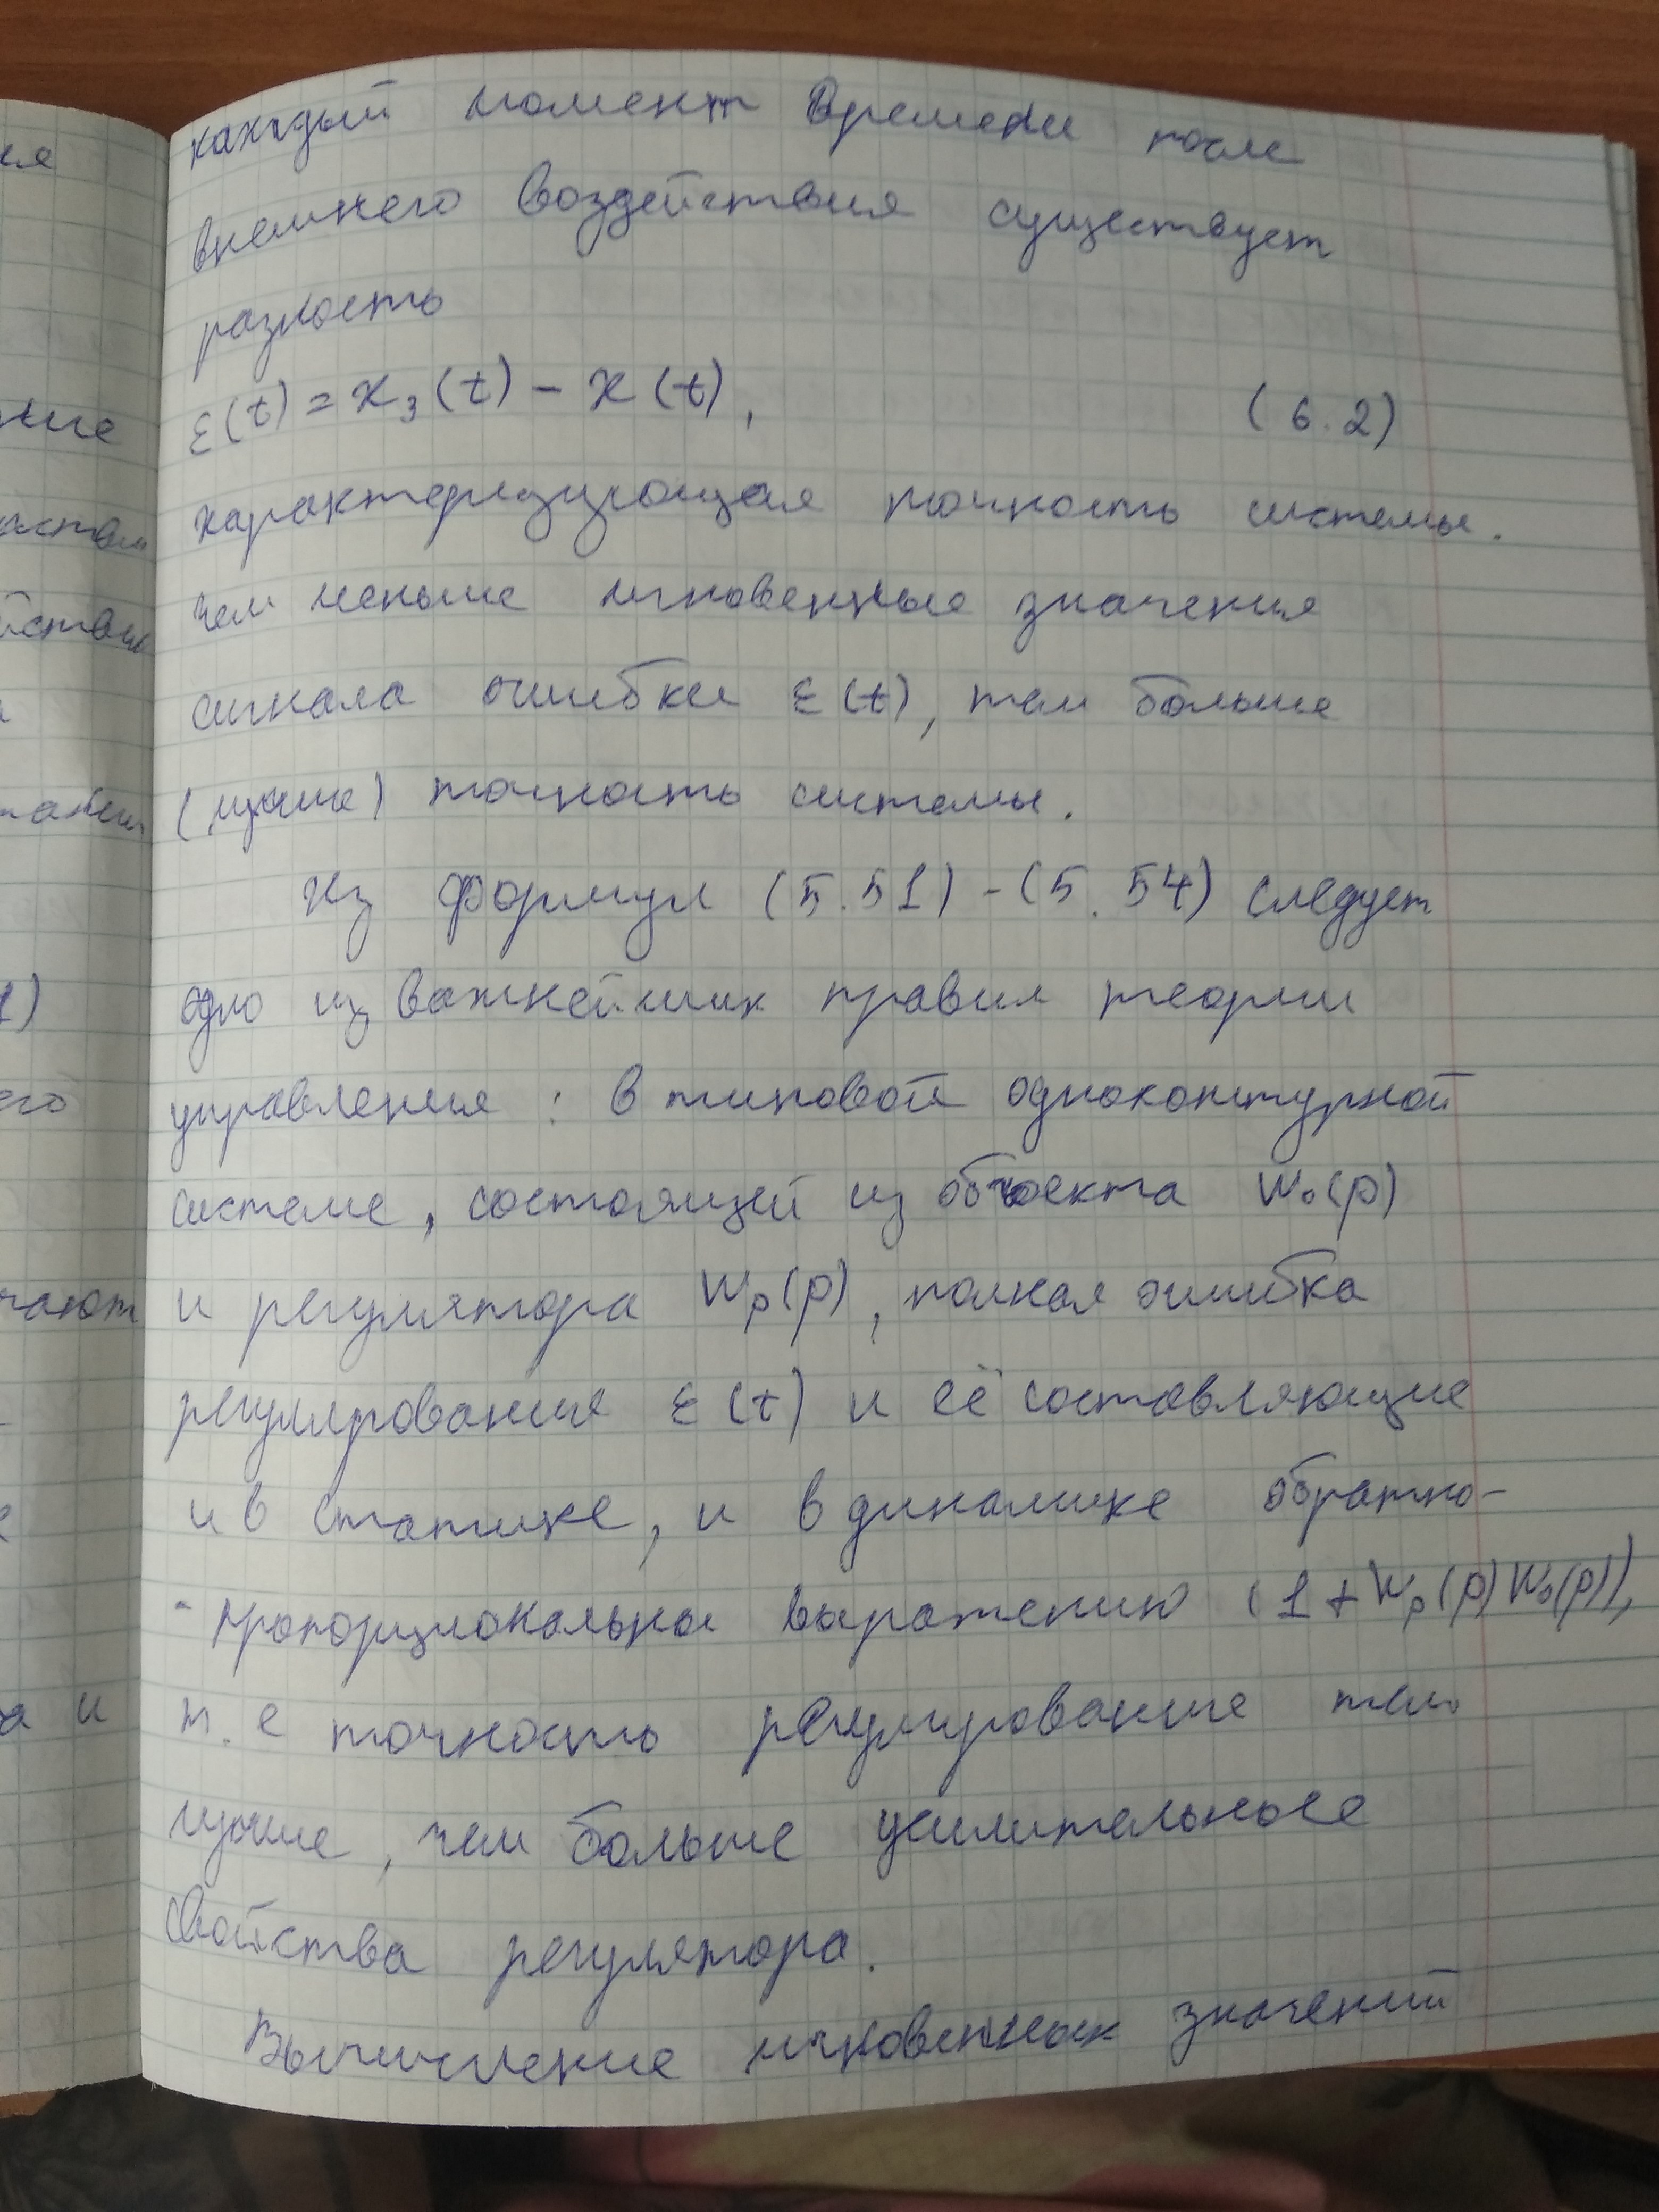 каждый момент времени после
внешнего воздействия существует
разность
ε(t) = x₃(t) − x(t), (6.2)
характеризующая точность системы.
чем меньше мгновенные значения
сигнала ошибки ε(t), тем больше
(лучше) точность системы.
Из формул (5.51) - (5.54) следует
одно из важнейших правил теории
управления: в типовой одноконтурной
системе, состоящей из объекта W₀(p)
и регулятора Wₚ(p), полная ошибка
регулирования ε(t) и её составляющие
и в статике, и в динамике обратно-
-пропорциональны выражению (1+Wₚ(p)W₀(p)),
т.е точность регулирование тем
лучше, чем больше усилительные
свойства регулятора.
Вычисление мгновенных значений